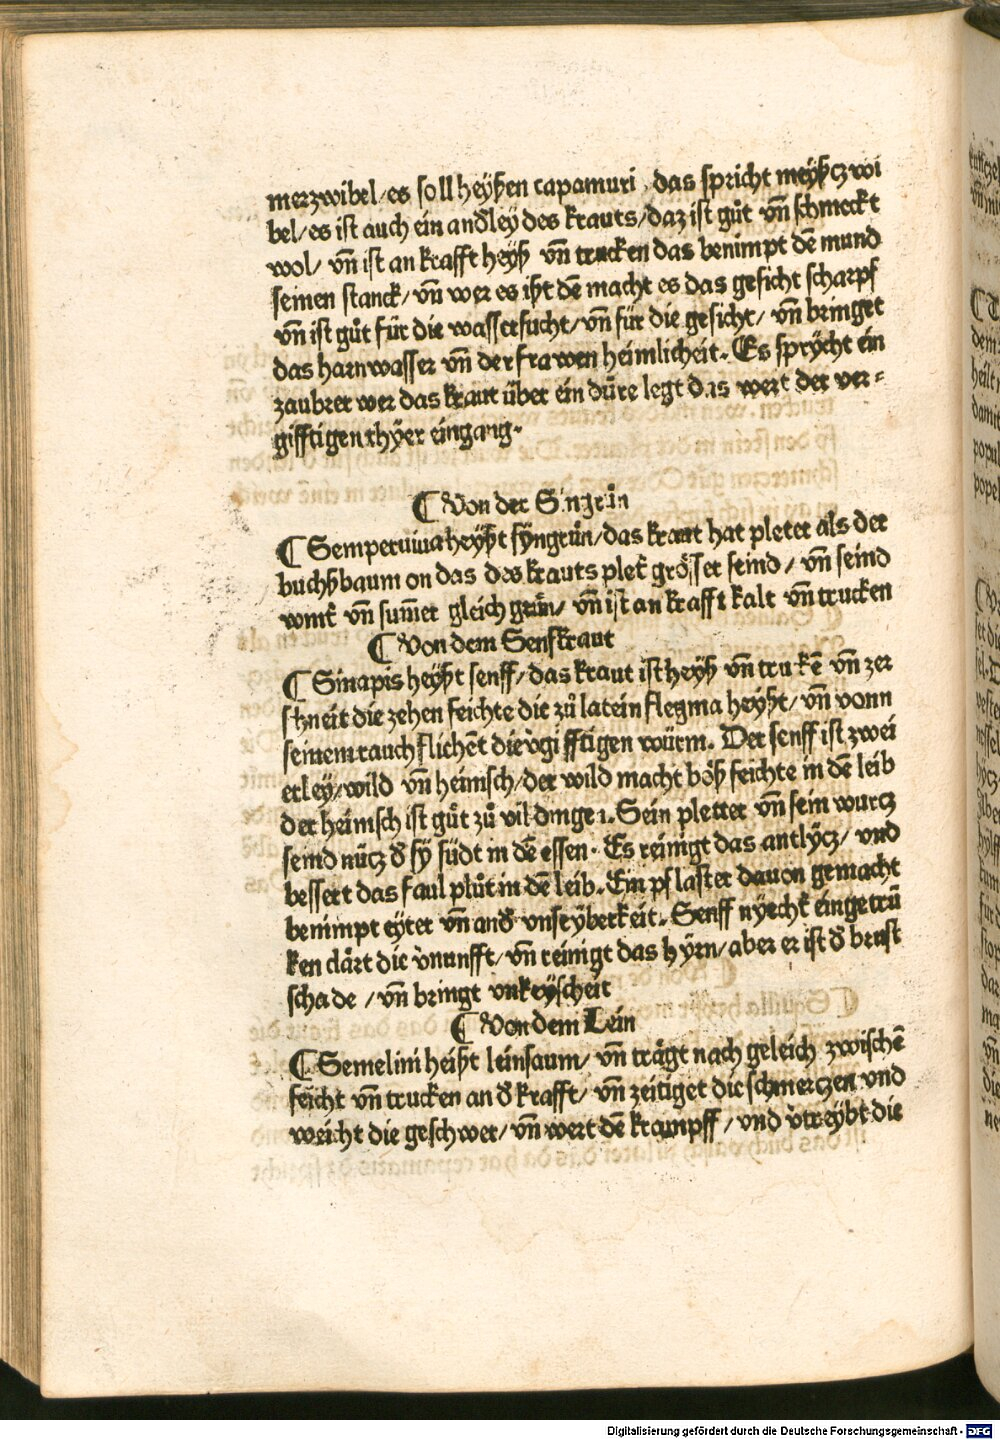 merzwibel/es soll heyßen capamuri , das spricht meyßczwi
bel/es ist auch ein anđley des krauts/daz ist gůt vn̄ schmeckt
wol/ vn̄ ist an krafft heyß vn̄ trucken das benimpt dē mund
seinen stanck/ vn̄ wer es ißt dē macht es das gesicht scharpf
vn̄ ist gůt für die wassersucht/vn̄ für die gesicht/ vn̄ bringet
das harnwasser vn̄ der frawen heimlicheit. Es sprycht ein
zaubrer wer das kraut über ein düre legt das wert der ver⸗
gifftigen thyer eingang.
⸿ Von der Singrůn
⸿ Semperuiua heyßt syngrůn/das kraut hat pleter als der
buchßbaum on das des krauts plet̄ grösser seind / vn̄ seind
wint̄ vn̄ sum̄er gleich grůn/ vn̄ ist an krafft kalt vn̄ trucken
⸿ Von dem Senfkraut
⸿ Sinapis heyßt senff/das kraut ist heyß vn̄ truckē vn̄ zer
schneit die zehen feichte die zů latein flegma heyßt/vn̄ vonn
seinem rauch flichēt die v̓gifftigen würm. Der senff ist zwei
erley/wild vn̄ heimsch/der wild macht böß feichte in dē leib
der heimsch ist gůt zů vil dingen. Sein pletter vn̄ sein wurcz
seind nücz đ sy südt in dē essen. Es reinigt das antlycz/ vnd
bessert das faul plůt in dē leib. Ein pflaster dauon gemacht
benimpt eyter vn̄ anđ vnseyberkeit. Senff nyechť eingetrū
ken clärt die v̓nunfft/vn̄ reinigt das hyrn/aber er ist đ brust
schade /vn̄ bringt vnkeyscheit
⸿ Von dem Lein
⸿ Semelini heißt leinsaum/vn̄ trägt nach geleich zwischē
feicht vn̄ trucken an đ krafft/ vn̄ zeitiget die schmerczen vnd
weicht die geschwer/vn̄ wert dē krampff/vnd v̓treybt die
Digitalisierung gefördert durch die Deutsche Forschungsgemeinschaft - DFG